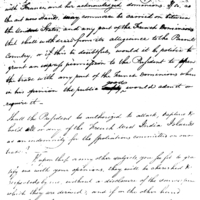 France, and her acknowledged dominions. If in
the act now stands, may commerce be carried on between
the United States, and any part of the French Dominions
that shall withdraw from its allegiance to the Parent
Country, or if this be doubtful, would it be politic to
insert an express permission to the President to open
the trade with any part of the French Dominions when
in his opinion the public would admit or
require it.
Shall the President be authorized to attack, capture &
hold all or any of the French West India Islands
as an indemnity for the spoliations committed on our
Upon these among other subjects you
me with your opinions, they will be cherished &
without a disclosure of the source
which they are derived; and if on the other hand